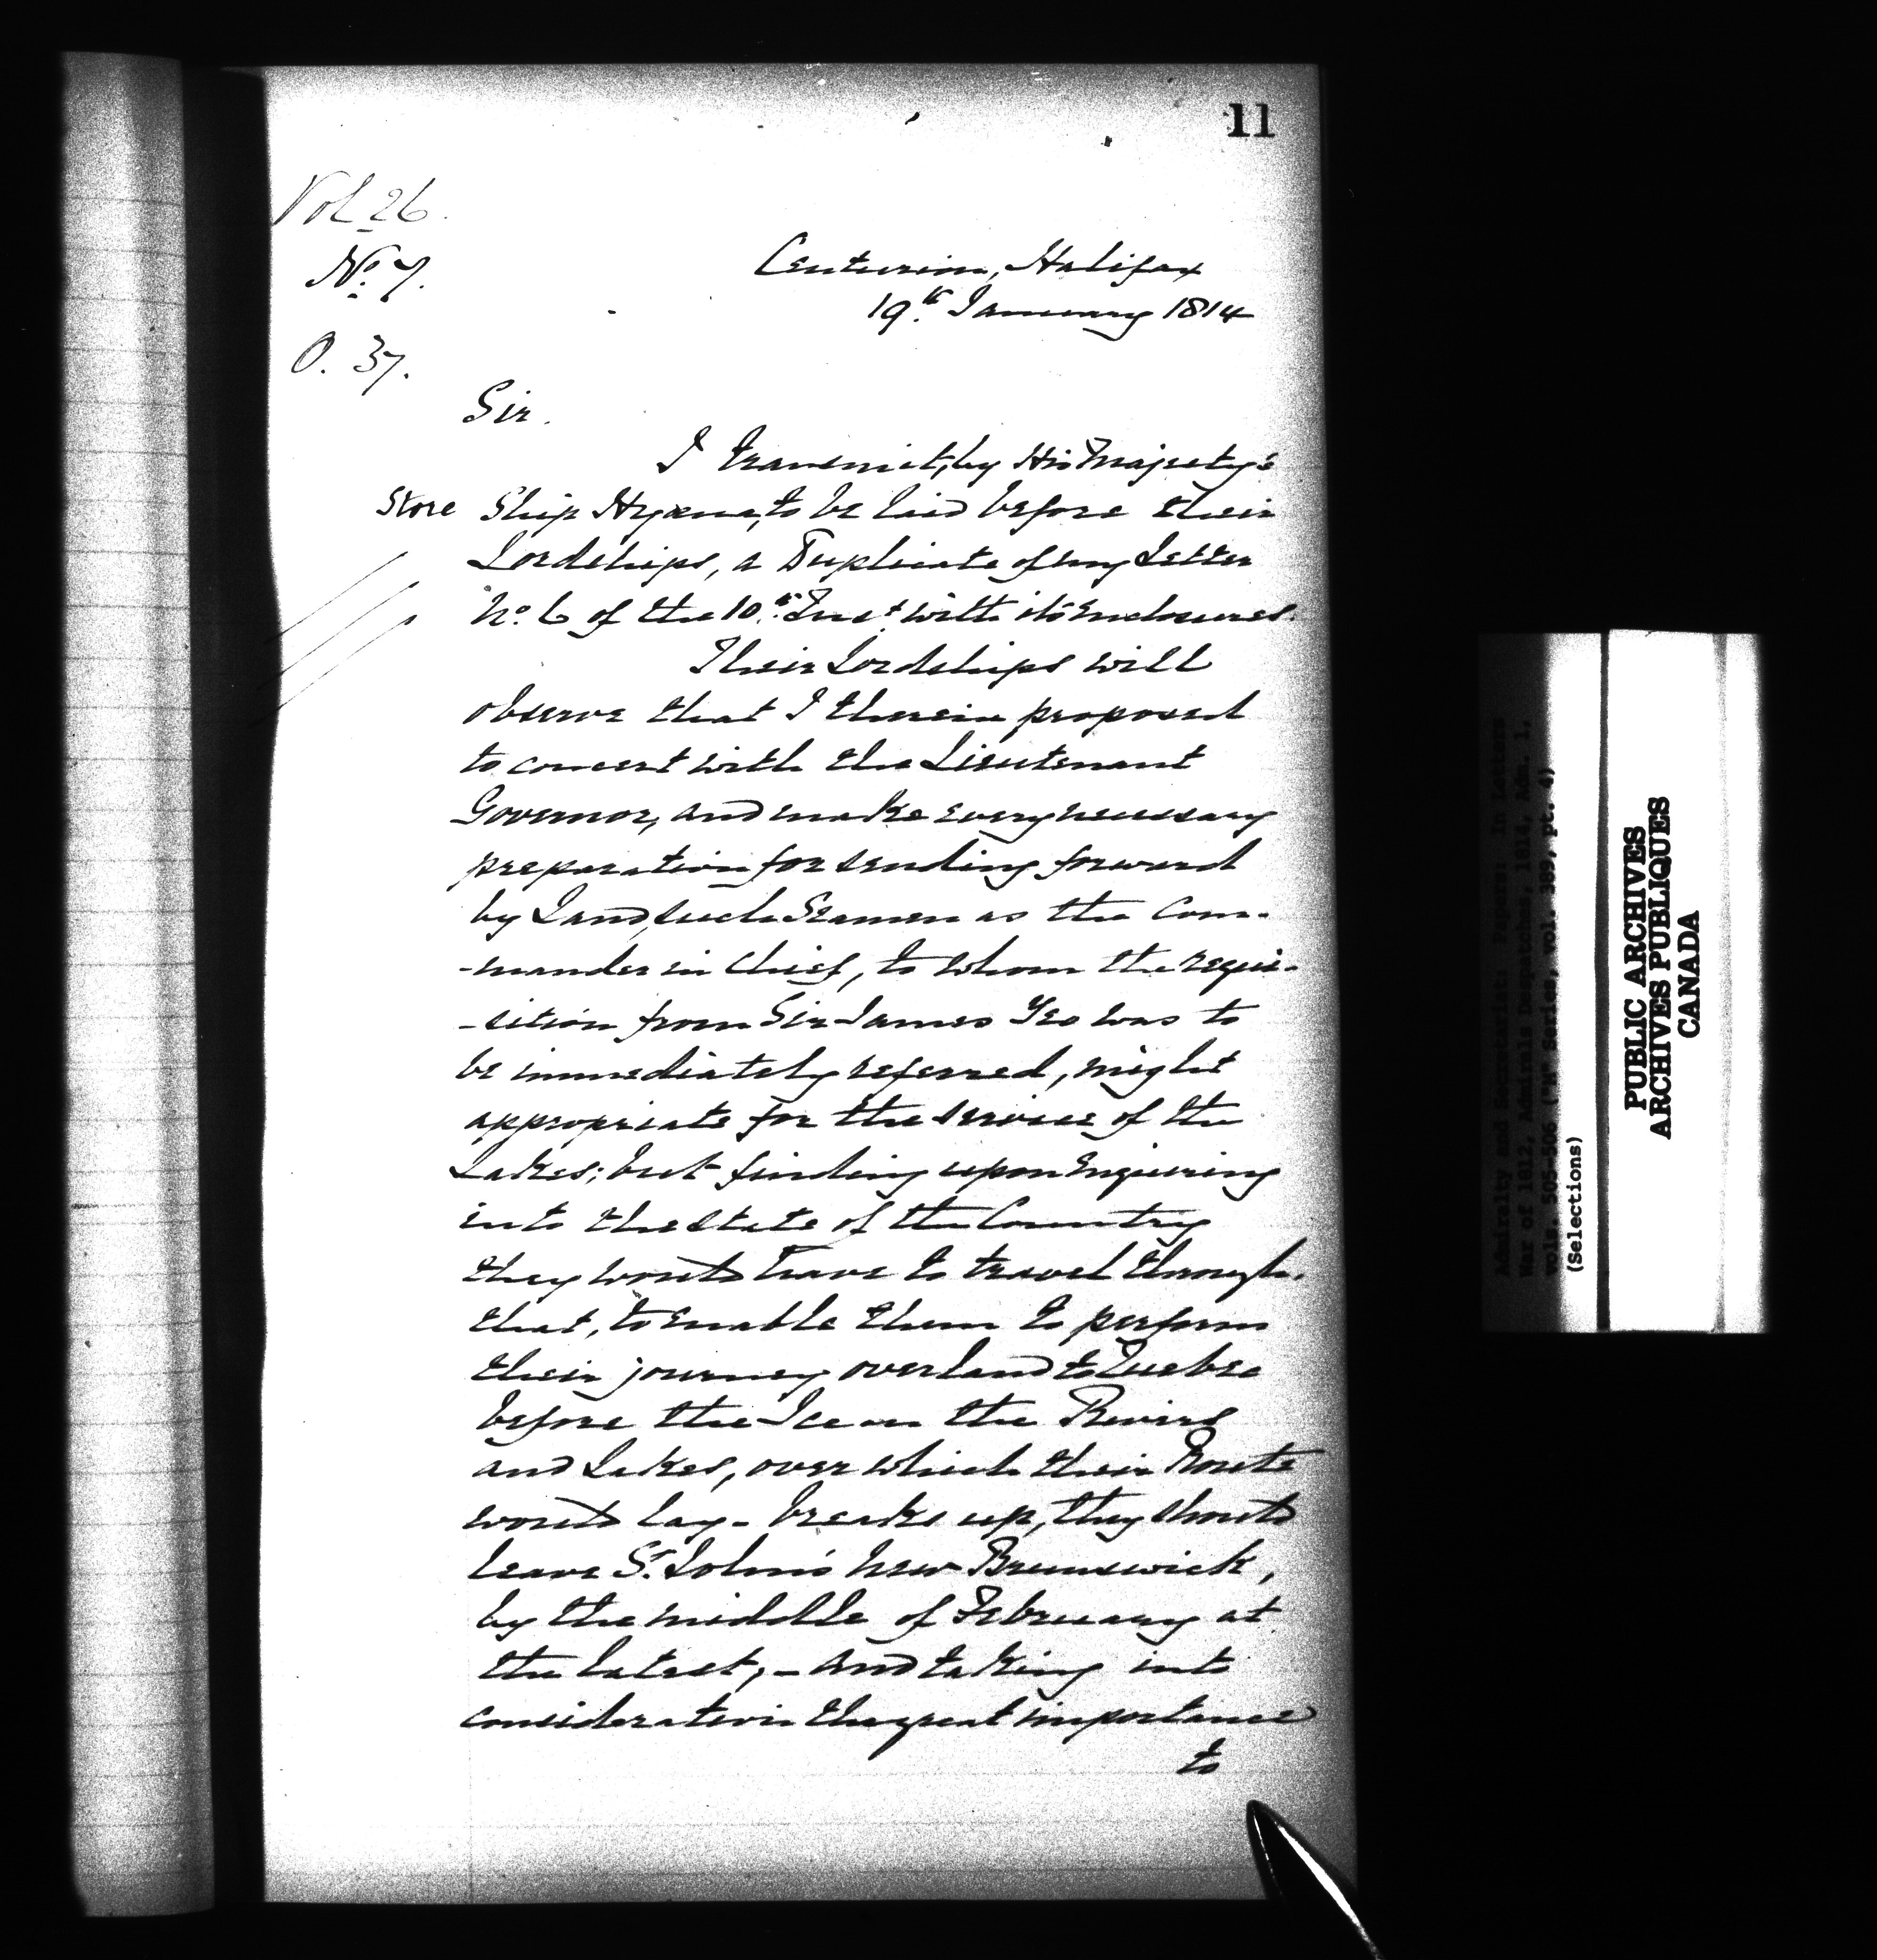 11
Vol 26.
No. 7.
O. 37.
Centurion, Halifax
19th. January 1814
Sir.
I transmit, by His Majesty's
Store Ship Hyaena, to be laid before their
Lordships, a Duplicate of my Letter
No. 6 of the 10th. Inst. with its Enclosures.
Their Lordships will
observe that I therein proposed
to concert with the Lieutenant
Governor, and make every necessary
preparation for sending forward
by Land, such Seamen as the Com-
-mander in Chief, to whom the requi-
-sition from Sir James Yeo was to
be immediately referred, might
appropriate for the service of the
Lakes; but finding upon Enquiring
into the State of the Country
they would have to travel through.
that, to enable them to perform
their journey overland to Quebec
before the Ice on the Rivers
and Lakes, over which their Route
would lay - breaks up, they should
leave St. John's New Brunswick,
by the middle of February at
the latest; - and taking into
consideration the great importance
to
Admiralty and Secretariat: Papers: In Letters
War of 1812, Admirals Despatches, 1814, Adm. 1,
vols. 505-506 ("M" Series, vol. 389, pt. 4)
(Selections)
PUBLIC ARCHIVES
ARCHIVES PUBLIQUES
CANADA